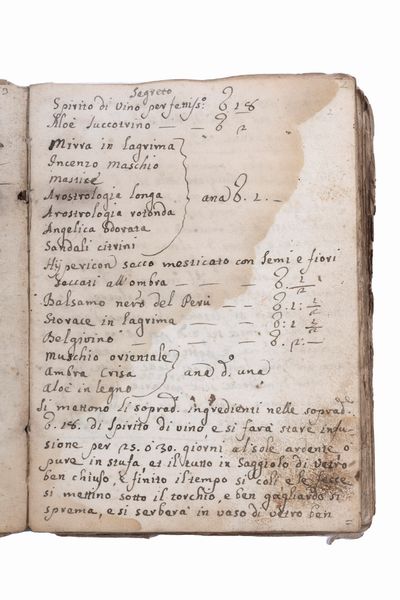 Segreto
Spirito di vino perfettiss.o ℥ 18
Aloè Succotrino — — ℥ 2
Mirra in lagrima
Incenzo Maschio
Mastice
Arostrologia longa ana ℥. 1. —
Arostrologia rotonda
Angelica odorata
Sandali citrini
Hijpericon secco mesticato con semi e fiori
seccati all'ombra — — — ℥. 1/2
Balsamo nero del Perù — — ℥. 1: 1/2
Storace in lagrima — — — ℥: 1 1/2
Belgivino — — — — ℥. 2: —
Muschio orientale
Ambra Crisa ana d.o una
Aloè in legno
Si mettono li soprad. ingredienti nelle soprad.de
℥. 18. di Spirito di vino e si farà stare infu-
sione per 25. ò 30. giorni al sole ardente o
pure in stufa, et il tutto in Saggiolo di vetro
ben chiuso, e finito il tempo si coli e le fecce
si mettino sotto il torchio, e ben gagliardo si
sprema, e si serberà in vaso di vetro ben